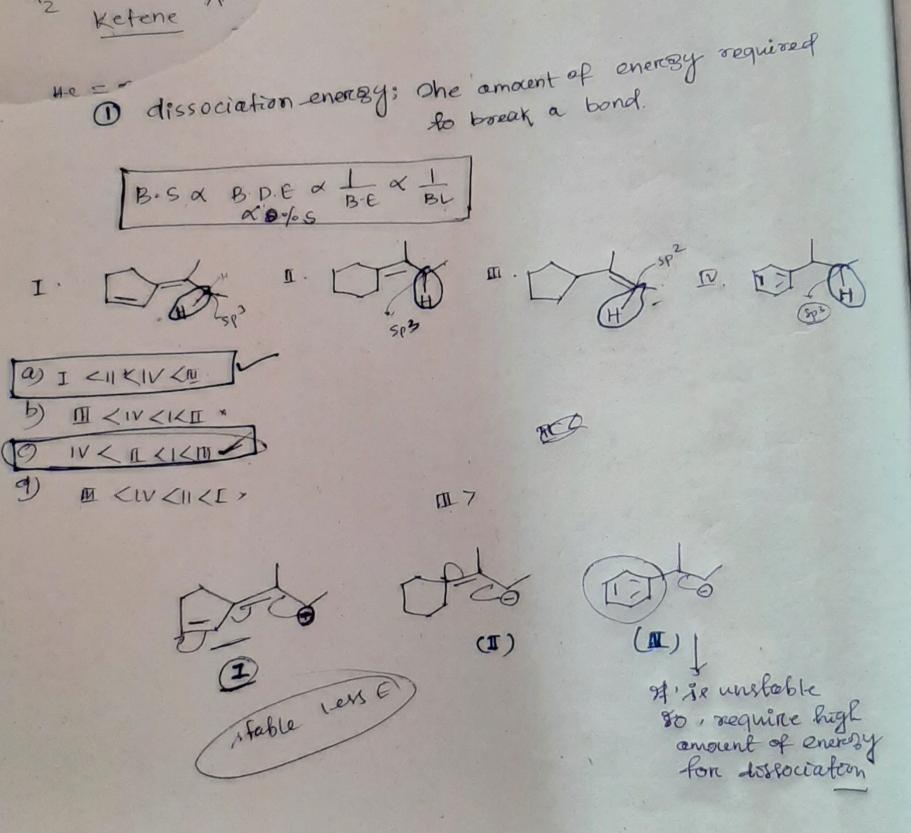 2
Ketene
① dissociation energy; The amount of energy required
to break a bond.
B.S ∝ B.D.E ∝ 1/B.E ∝ 1/BL
∝ % S
I. II. III. IV.
H sp³ H sp³ H sp² H sp³
a) I < II < IV < III
b) III < IV < I < II ×
c) IV < II < I < III
d) III < IV < II < I ×
III >
I (II) (IV)
stable less E
It is unstable
so, require high
amount of energy
for dissociation